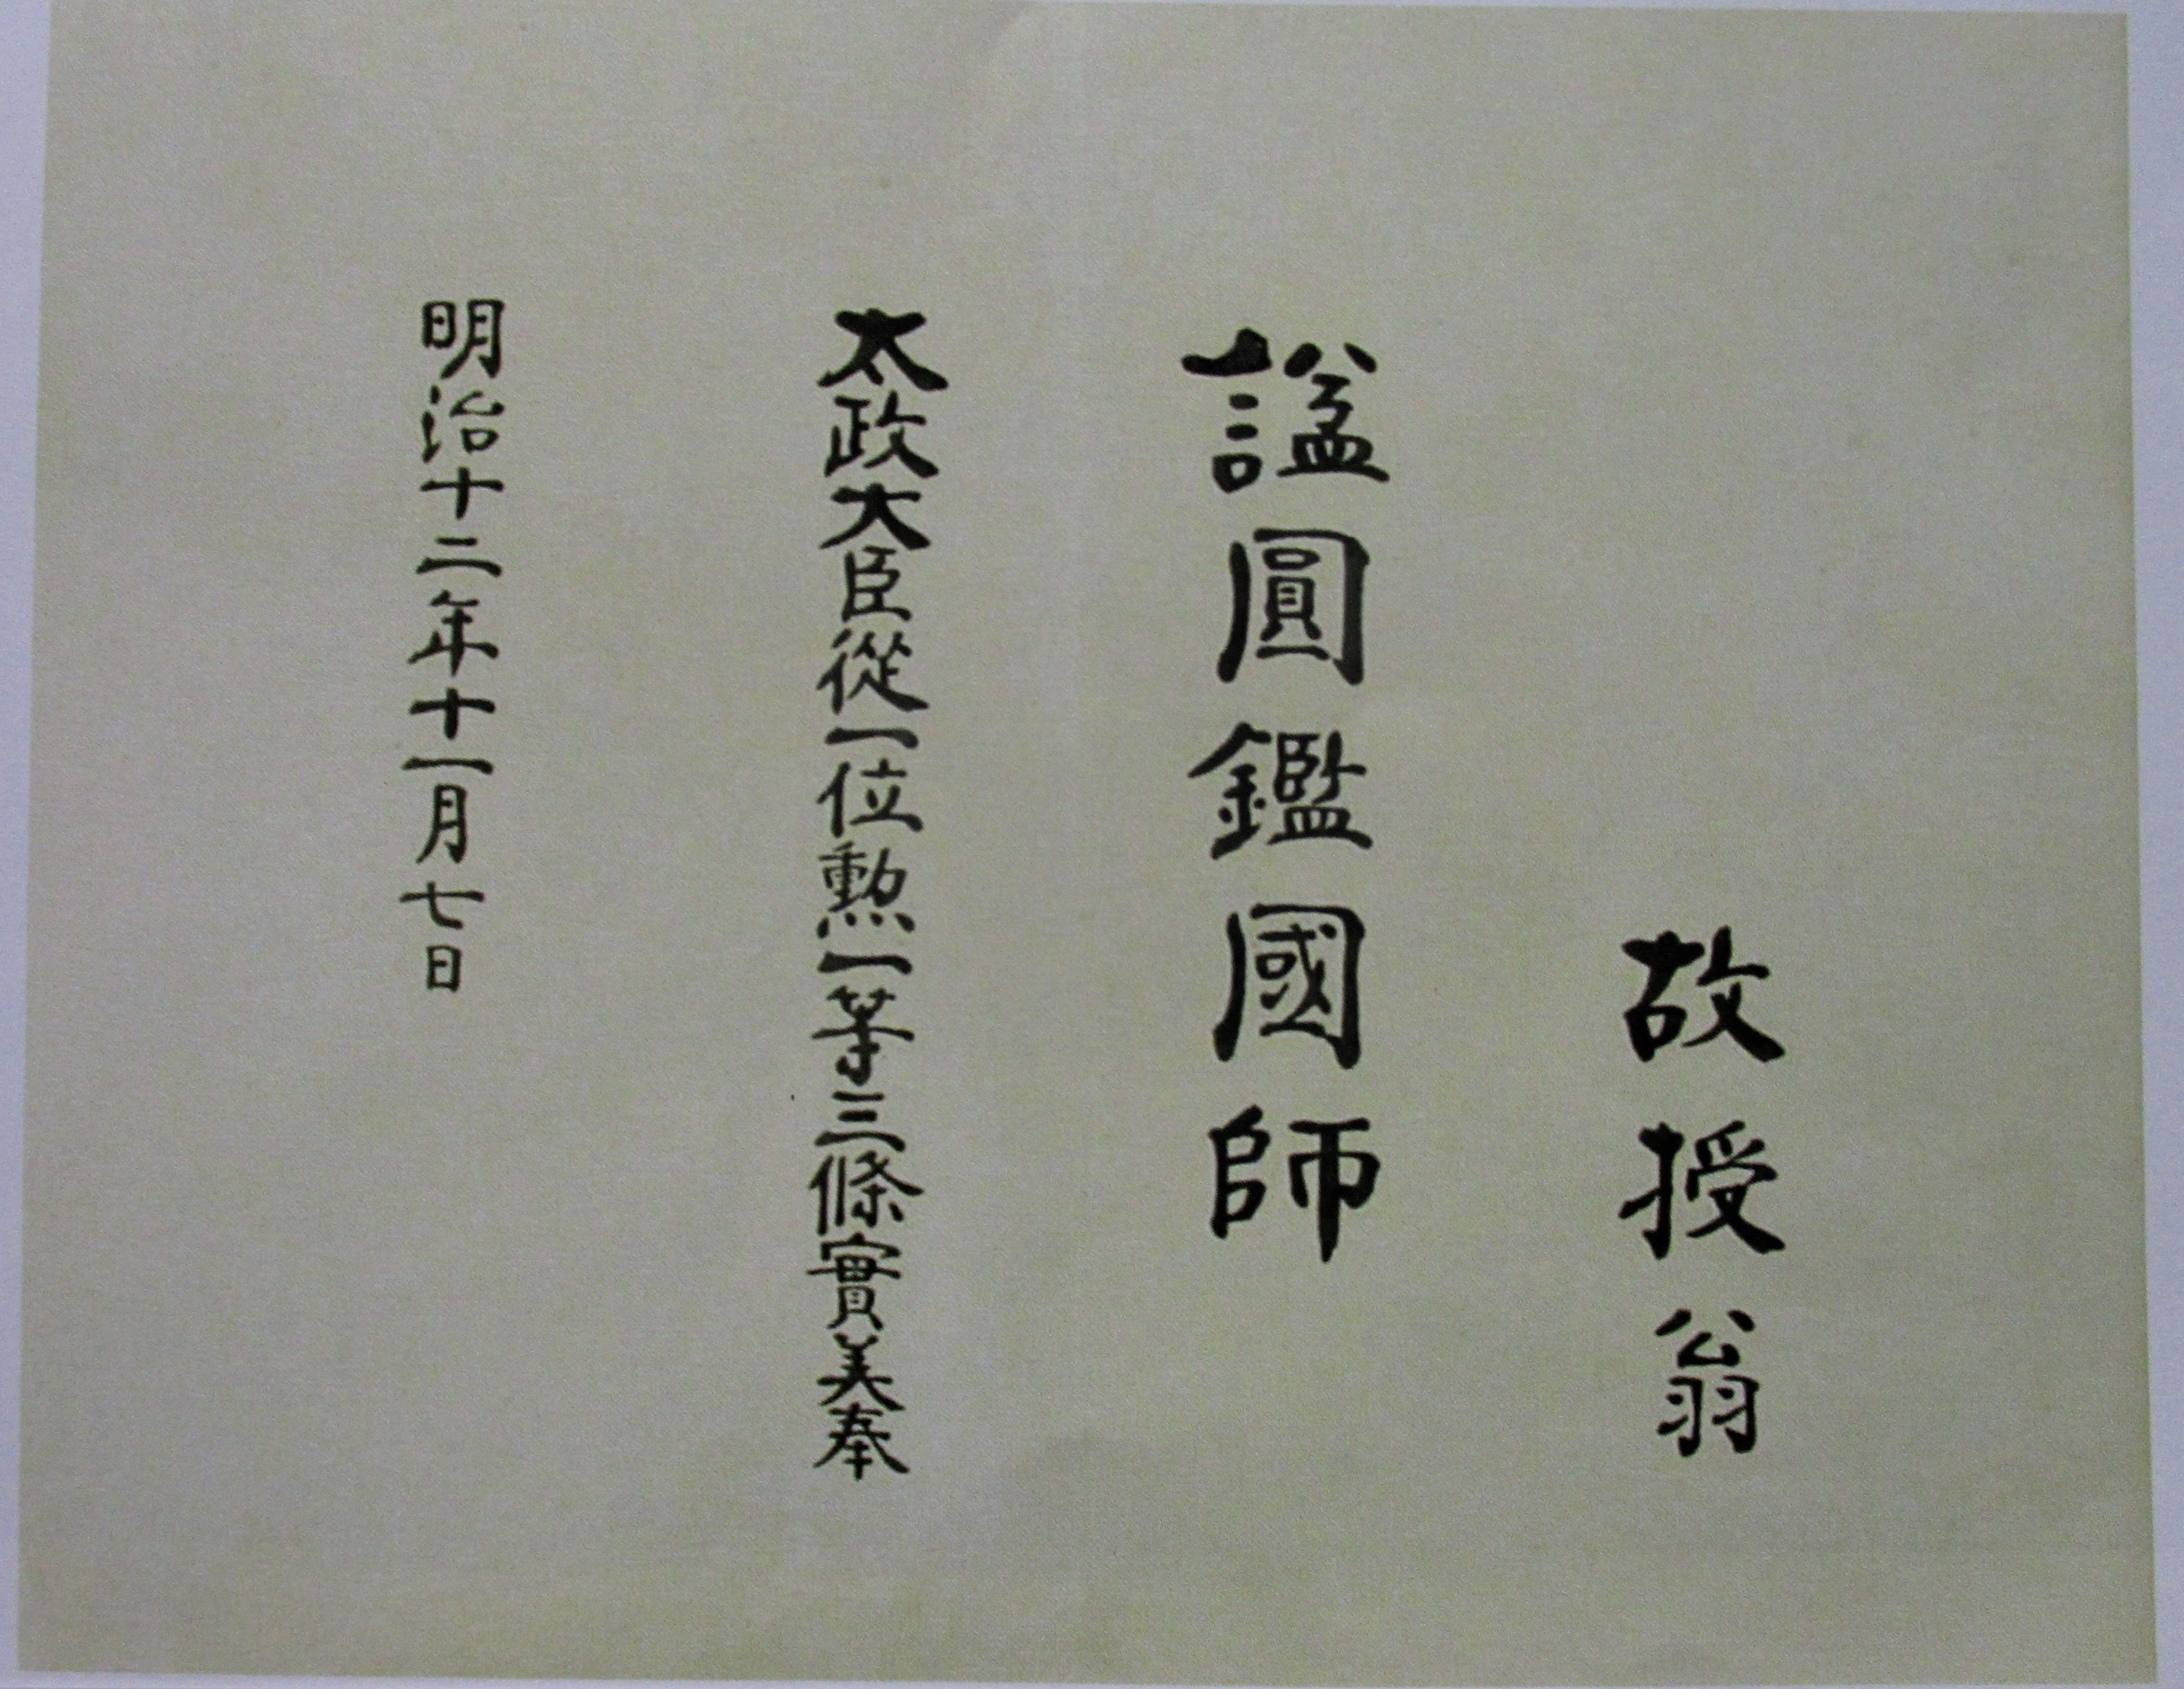 故授翁
諡圓鑑國師
太政大臣從一位勲一等三條實美奉
明治十二年十一月七日